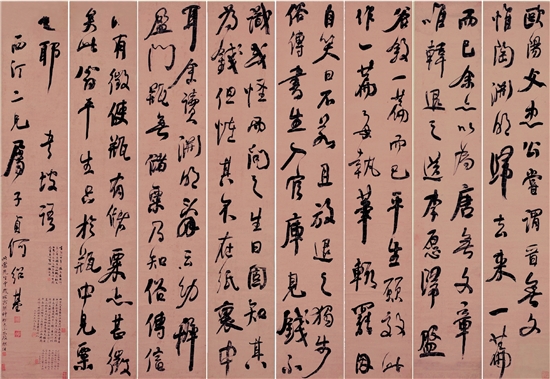 歐陽文忠公嘗謂晉無文
惟陶淵明歸去来一篇
而已余亦以為唐無文章
唯韓退之送李愿歸盤
谷敘一篇而已平生願效此
作一篇每執筆輒罷因
自笑曰不若且放退之獨步
俗傳書生入官庫見錢不
識或怪而問之生曰固知其
為錢但怪其不在紙裹中
耳余讀淵明辭云幼稚
盈門瓶無儲粟乃知俗傳信
而有徵使瓶有儲粟亦甚微
矣此翁平生只於瓶中見粟
也耶 書坡語
西汀二兄屬 子貞何紹基